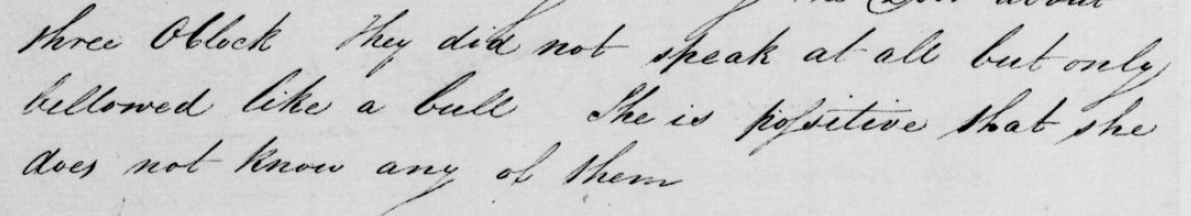 about
three Oblock They did not speak at all but only
bellowed like a bull She is possitive that she
does not know any of them